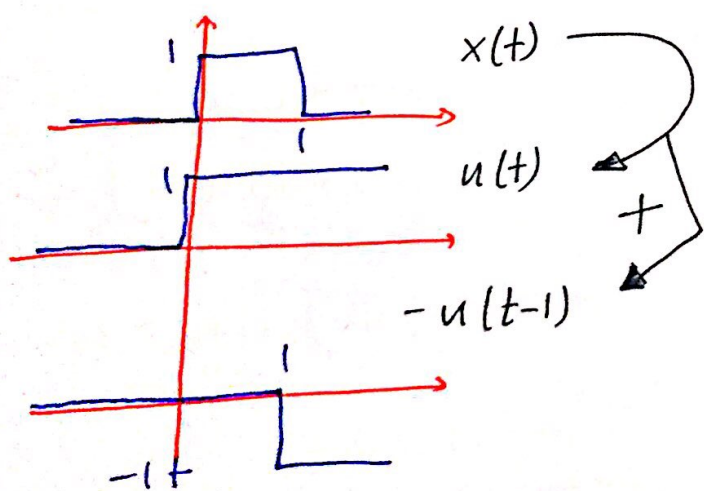 1 x(t)
1
1 u(t)
+
-u(t-1)
1
-1